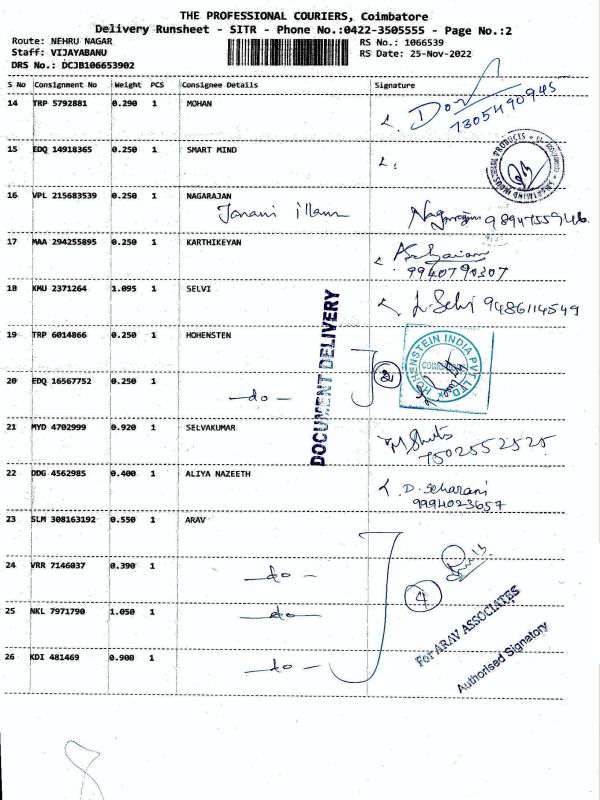 THE PROFESSIONAL COURIERS, Coimbatore
Delivery Runsheet - SITR - Phone No.:0422-3505555 - Page No.:2
Route: NEHRU NAGAR
Staff: VIJAYABANU
DRS No.: DCJB106653902
RS No.: 1066539
RS Date: 25-Nov-2022
S No Consignment No Weight PCS Consignee Details Signature
14 TRP 5792881 0.290 1 MOHAN
7305490945
15 EDQ 14918365 0.250 1 SMART MIND
16 VPL 215683539 0.250 1 NAGARAJAN
Janani illam Nagarajan
17 MAA 294255895 0.250 1 KARTHIKEYAN
9940790307
18 KMU 2371264 1.095 1 SELVI
L. Selvi 9486114549
19 TRP 6014866 0.250 1 HOHENSTEN
HOHENSTEIN INDIA PVT LTD
2
20 EDQ 16567752 0.250 1
-do-
DOCUMENT DELIVERY
21 MYD 4702999 0.920 1 SELVAKUMAR
7502552525
22 DDG 4562985 0.400 1 ALIYA NAZEETH
D. Seharani
9994023657
23 SLM 308163192 0.550 1 ARAV
24 VRR 7146037 0.390 1
-do-
4
25 NKL 7971790 1.050 1
-do-
For ARAV ASSOCIATES
26 KDI 481469 0.900 1
-do-
Authorised Signatory